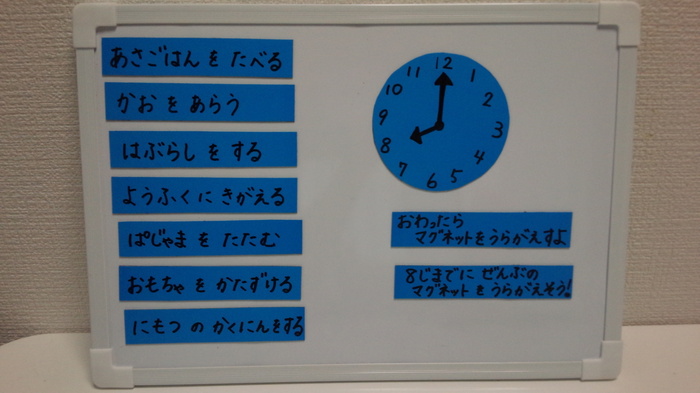 あさごはん を たべる
かお を あらう
はぶらし を する
ようふく に きがえる
ぱじゃま を たたむ
おもちゃ を かたずける
にもつ の かくにんをする
12
1
2
3
4
5
6
7
8
9
10
11
おわったら
マグネットをうらがえすよ
8じまでに ぜんぶの
マグネット を うらがえそう!